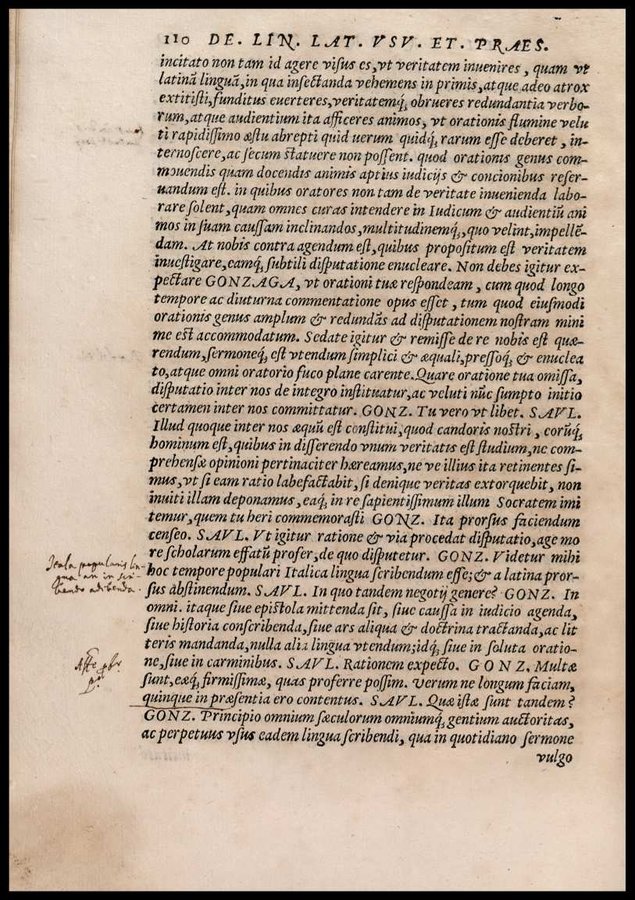 110 DE. LIN. LAT. VSV. ET. PRAES.
incitato non tam id agere visus es, vt veritatem inuenires, quam vt
latinā linguā, in qua insectanda vehemens in primis, atque adeo atrox
extitisti, funditus euerteres, veritatemq́; obrueres redundantia verbo-
rum, atque audientium ita afficeres animos, vt orationis flumine velu
ti rapidissimo æstu abrepti quid uerum quidq́; rarum esse deberet, in-
ternoscere, ac secum statuere non possent. quod orationis genus com-
mouendis quam docendis animis aptius iudicijs & concionibus reser-
uandum est. in quibus oratores non tam de veritate inuenienda labo-
rare solent, quam omnes curas intendere in Iudicum & audientiū ani
mos in suam caussam inclinandos, multitudinemq́;, quo velint, impellē-
dam. At nobis contra agendum est, quibus propositum est veritatem
inuestigare, eamq́; subtili disputatione enucleare. Non debes igitur ex-
pectare GONZAGA, vt orationi tuæ respondeam, cum quod longo
tempore ac diuturna commentatione opus esset, tum quod eiusmodi
orationis genus amplum & redundās ad disputationem nostram mini
me est accommodatum. Sedate igitur & remisse de re nobis est quæ-
rendum, sermoneq́; est vtendum simplici & æquali, pressoq́; & enuclea
to, atque omni oratorio fuco plane carente. Quare oratione tua omissa,
disputatio inter nos de integro instituatur, ac veluti nūc sumpto initio
certamen inter nos committatur. GONZ. Tu vero vt libet. SAVL.
Illud quoque inter nos æquū est constitui, quod candoris nostri, corūq́;
hominum est, quibus in disserendo vnum veritatis est studium, ne com-
prehensæ opinioni pertinaciter hæreamus, ne ve illius ita retinentes si-
mus, vt si eam ratio labefactabit, si denique veritas extorquebit, non
inuiti illam deponamus, eaq́; in re sapientissimum illum Socratem imi
temur, quem tu heri commemorasti GONZ. Ita prorsus faciendum
censeo. SAVL. Vt igitur ratione & via procedat disputatio, age mo
re scholarum effatū profer, de quo disputetur. GONZ. Videtur mihi
hoc tempore populari Italica lingua scribendum esse; & a latina pror-
sus abstinendum. SAVL. In quo tandem negotij genere? GONZ. In
omni. itaque siue epistola mittenda sit, siue caussa in iudicio agenda,
siue historia conscribenda, siue ars aliqua & doctrina tractanda, ac lit
teris mandanda, nulla alia lingua vtendum; idq́; siue in soluta oratio-
ne, siue in carminibus. SAVL. Rationem expecto. GONZ. Multæ
sunt, eæq́; firmissimæ, quas proferre possim. Verum ne longum faciam,
quinque in præsentia ero contentus. SAVL. Quæ istæ sunt tandem?
GONZ. Principio omnium sæculorum omniumq́; gentium auctoritas,
ac perpetuus vsus eadem lingua scribendi, qua in quotidiano sermone
vulgo
Itala popularis lin-
gua an in scri-
bendo adibenda.